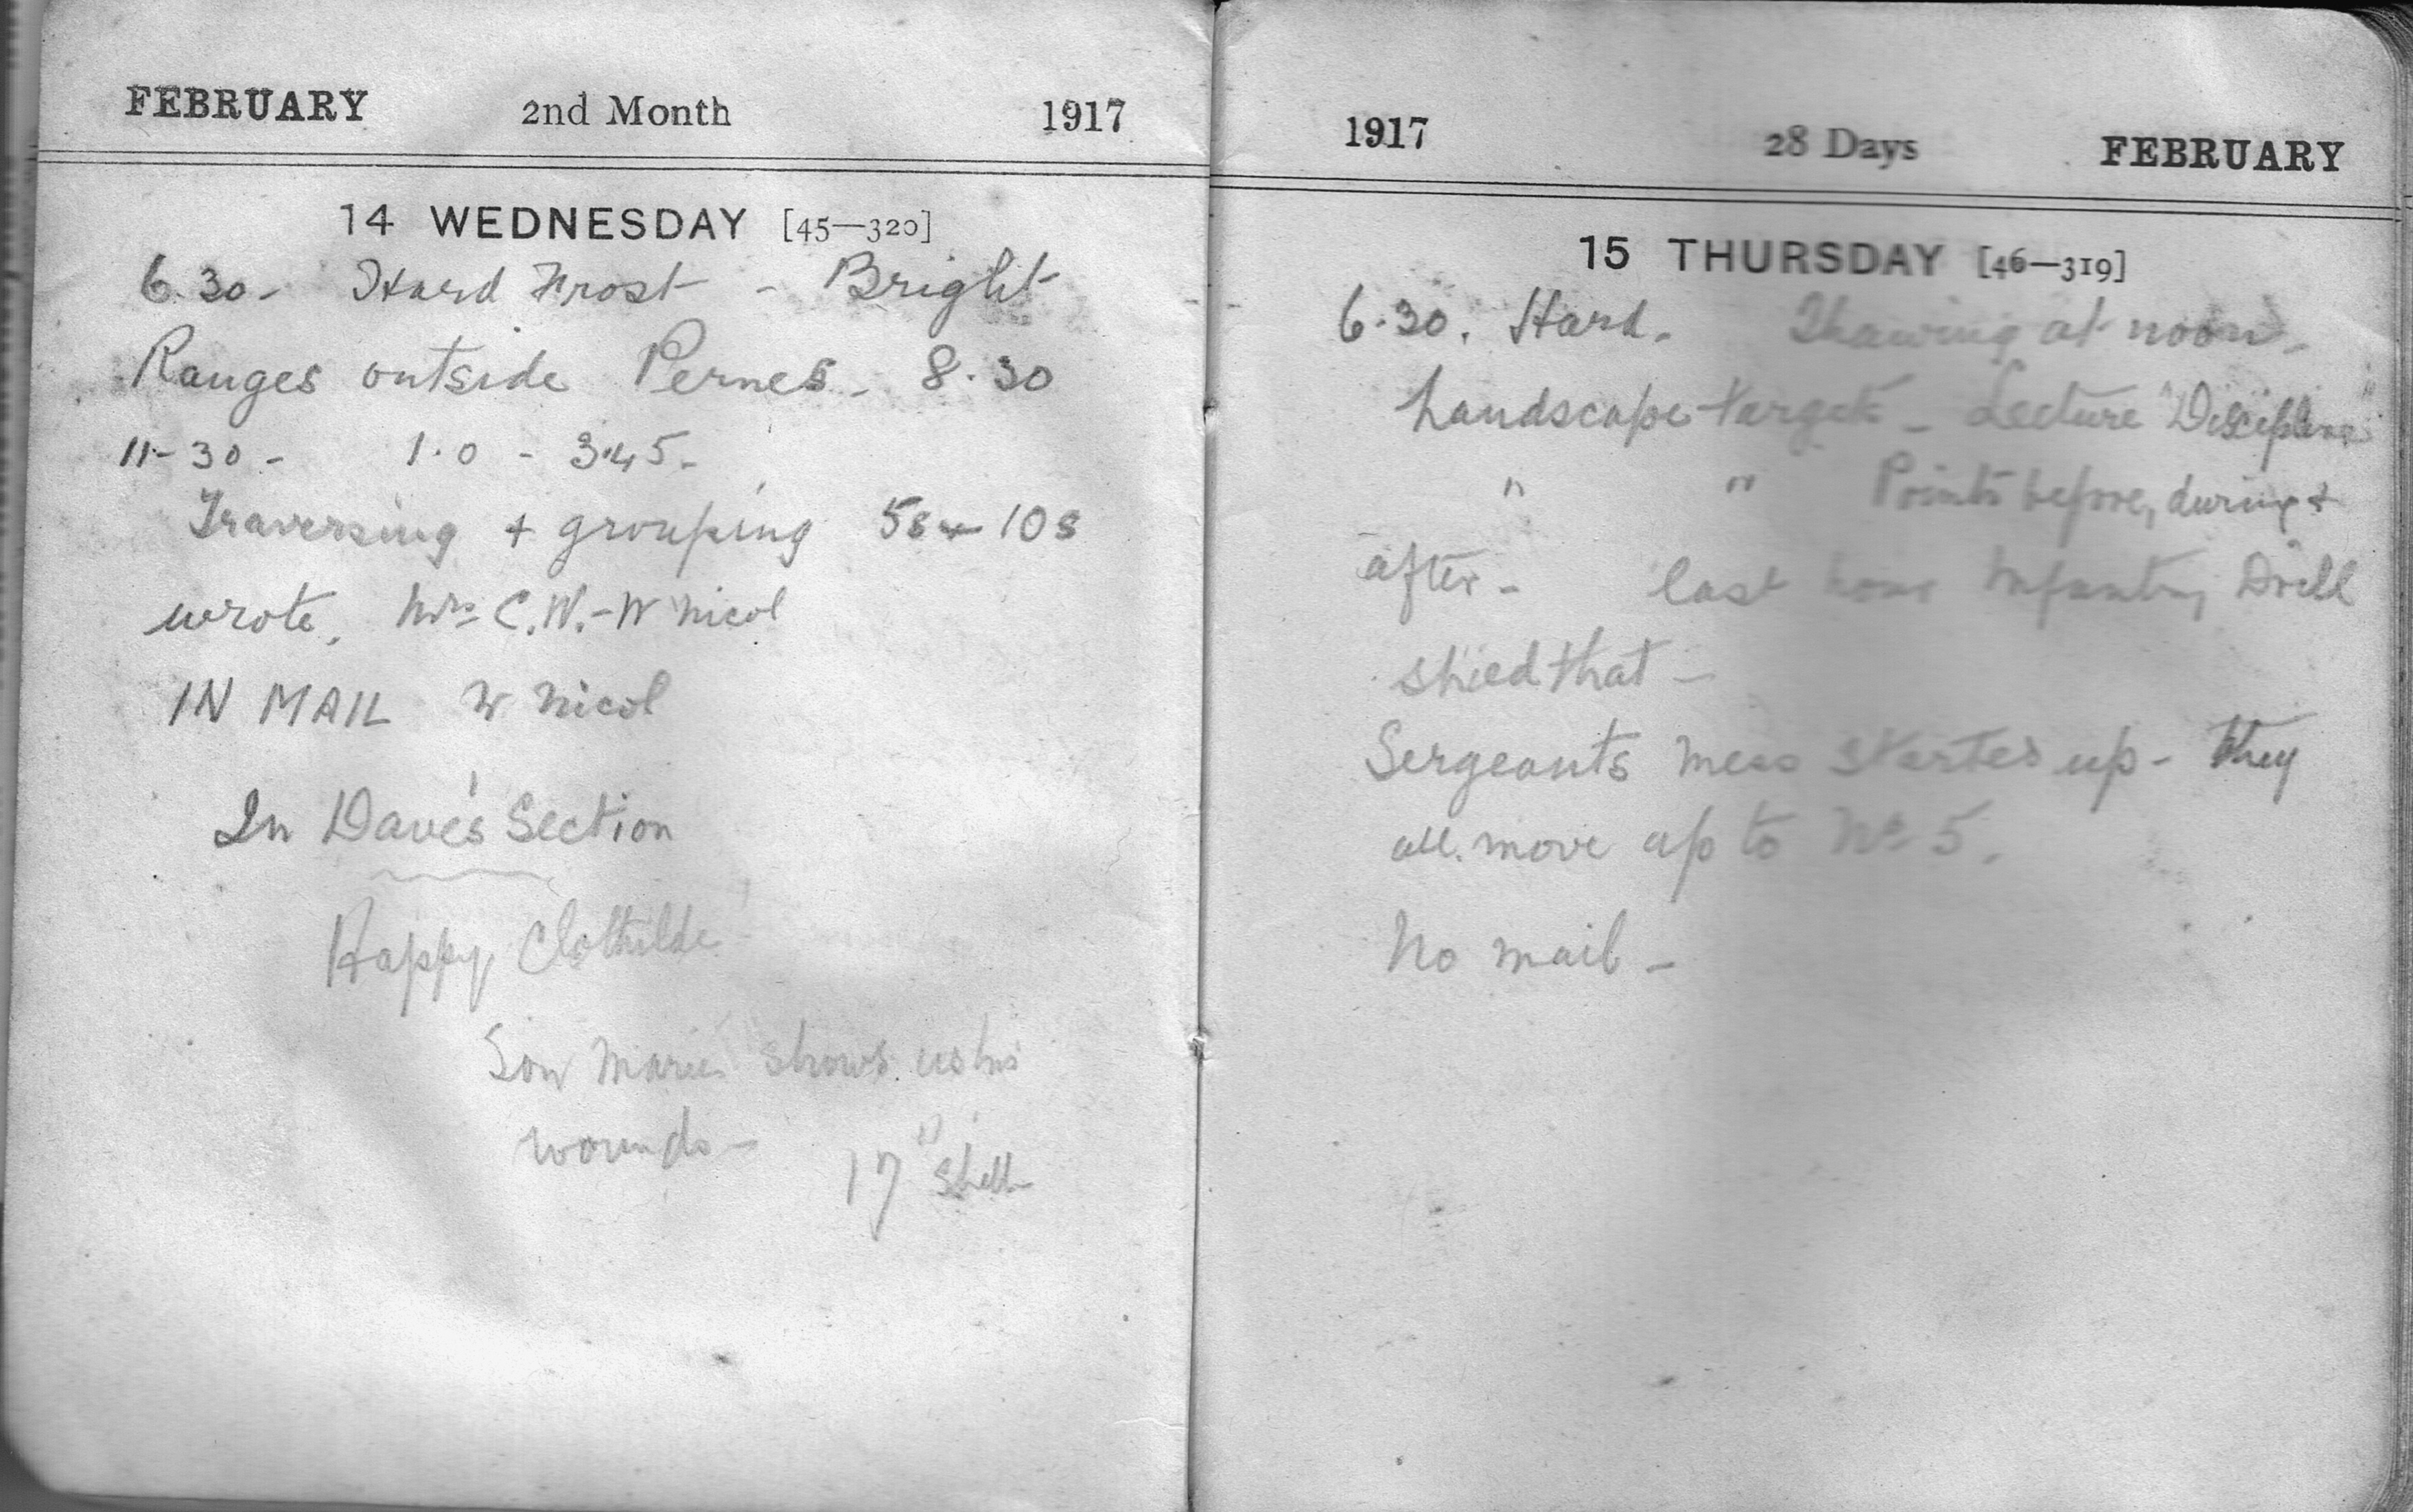 FEBRUARY 2nd Month 1917
14 WEDNESDAY [45—320]
6.30- Hard Frost - Bright
Ranges outside Pernes - 8.30
11-30 - 1.0 - 3.45-
Traversing + grouping 5s 10s
wrote, Mrs C.W.-W Nicol
IN MAIL W Nicol
In Dave's Section
Happy Clothilde
Son Marie shows us his
wounds- 17" Shell
1917 28 Days FEBRUARY
15 THURSDAY [46—319]
6.30. Hard. Thawing at noon.
Landscape targets - Lecture "Discipline"
" " Points before, during +
after- last hour Infantry Drill
shied that -
Sergeants mess started up - they
all. move up to No 5.
No mail -